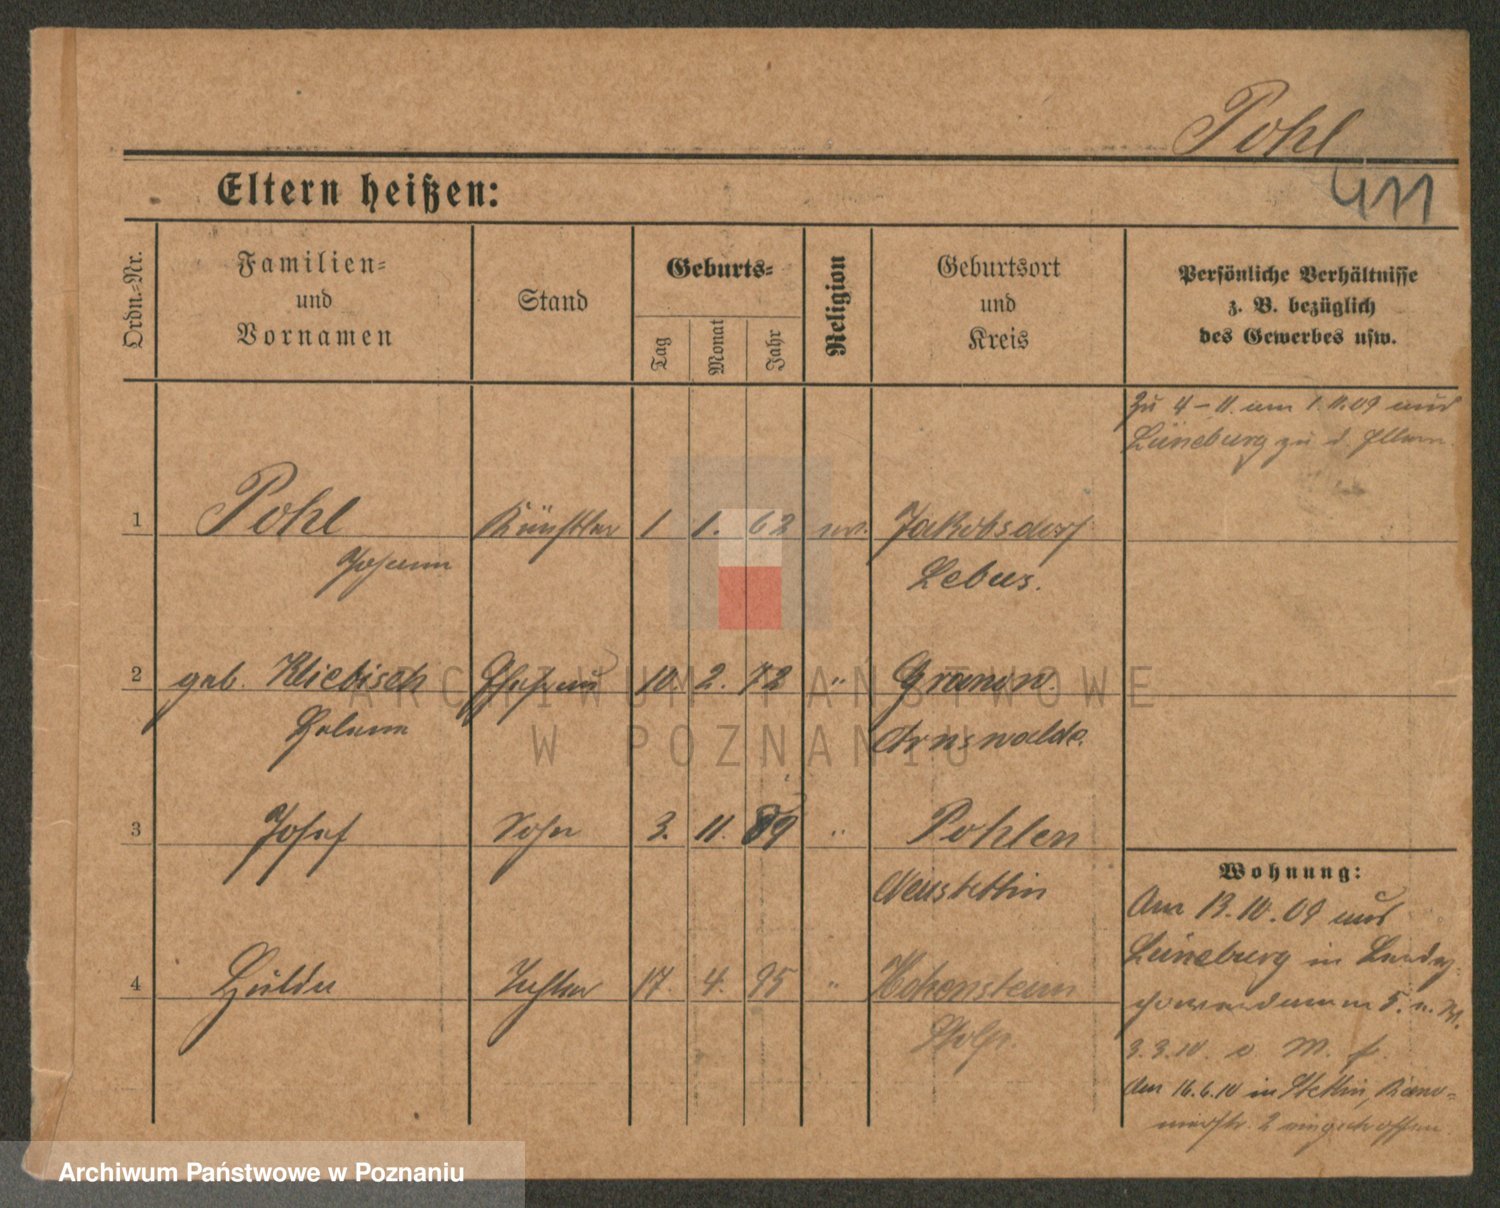 Pohl
411
Eltern heißen:
Ordn.-Nr.
Familien-
und
Vornamen
Stand
Geburts-
Tag
Monat
Jahr
Religion
Geburtsort
und
Kreis
Persönliche Verhältnisse
z. B. bezüglich
des Gewerbes usw.
Zu 4 – 11. am 1.11.09 aus
Lüneburg zu d. Eltern.
1 Pohl Künstler 1 1. 62 ev. Jakobsdorf
Johann Lebus.
2 geb. Kliebisch Ehefrau 10. 2. 72 " Granow.
Helene Arnswalde.
3 Josef Sohn 3. 11. 89 " Pohlen
Neustettin
4 Hulda Tochter 17. 4. 95 " Hohenstein
Stolp.
Wohnung:
Am 13.10.09 aus
Lüneburg in
5. n. W.
3.3.10. v. M. f.
Am 16.6.10 in Stettin,
2 eingetroffen.
ARCHIWUM PAŃSTWOWE
W POZNANIU
Archiwum Państwowe w Poznaniu